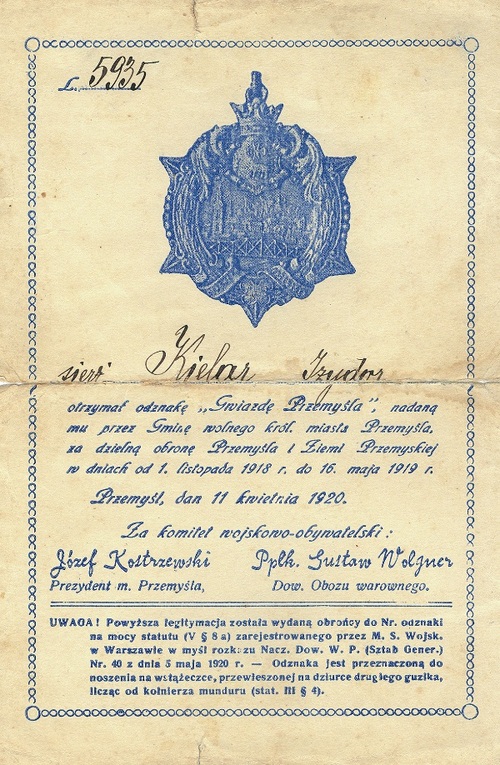 L. 5935
sierż Kielar Izydor
otrzymał odznakę „Gwiazdę Przemyśla”, nadaną
mu przez Gminę wolnego król. miasta Przemyśla,
za dzielną obronę Przemyśla i Ziemi Przemyskiej
w dniach od 1. listopada 1918 r. do 16. maja 1919 r.
Przemyśl, dan 11 kwietnia 1920.
Za komitet wojskowo-obywatelski:
Józef Kostrzewski Ppłk. Gustaw Wolgner
Prezydent m. Przemyśla, Dow. Obozu warownego.
UWAGA! Powyższa legitymacja została wydaną obrońcy do Nr. odznaki
na mocy statutu (V § 8 a) zarejestrowanego przez M. S. Wojsk.
w Warszawie w myśl rozkazu Nacz. Dow. W. P. (Sztab Gener.)
Nr. 40 z dnia 5 maja 1920 r. — Odznaka jest przeznaczoną do
noszenia na wstążeczce, przewleszonej na dziurce drugiego guzika,
licząc od kołnierza munduru (stat. III § 4).